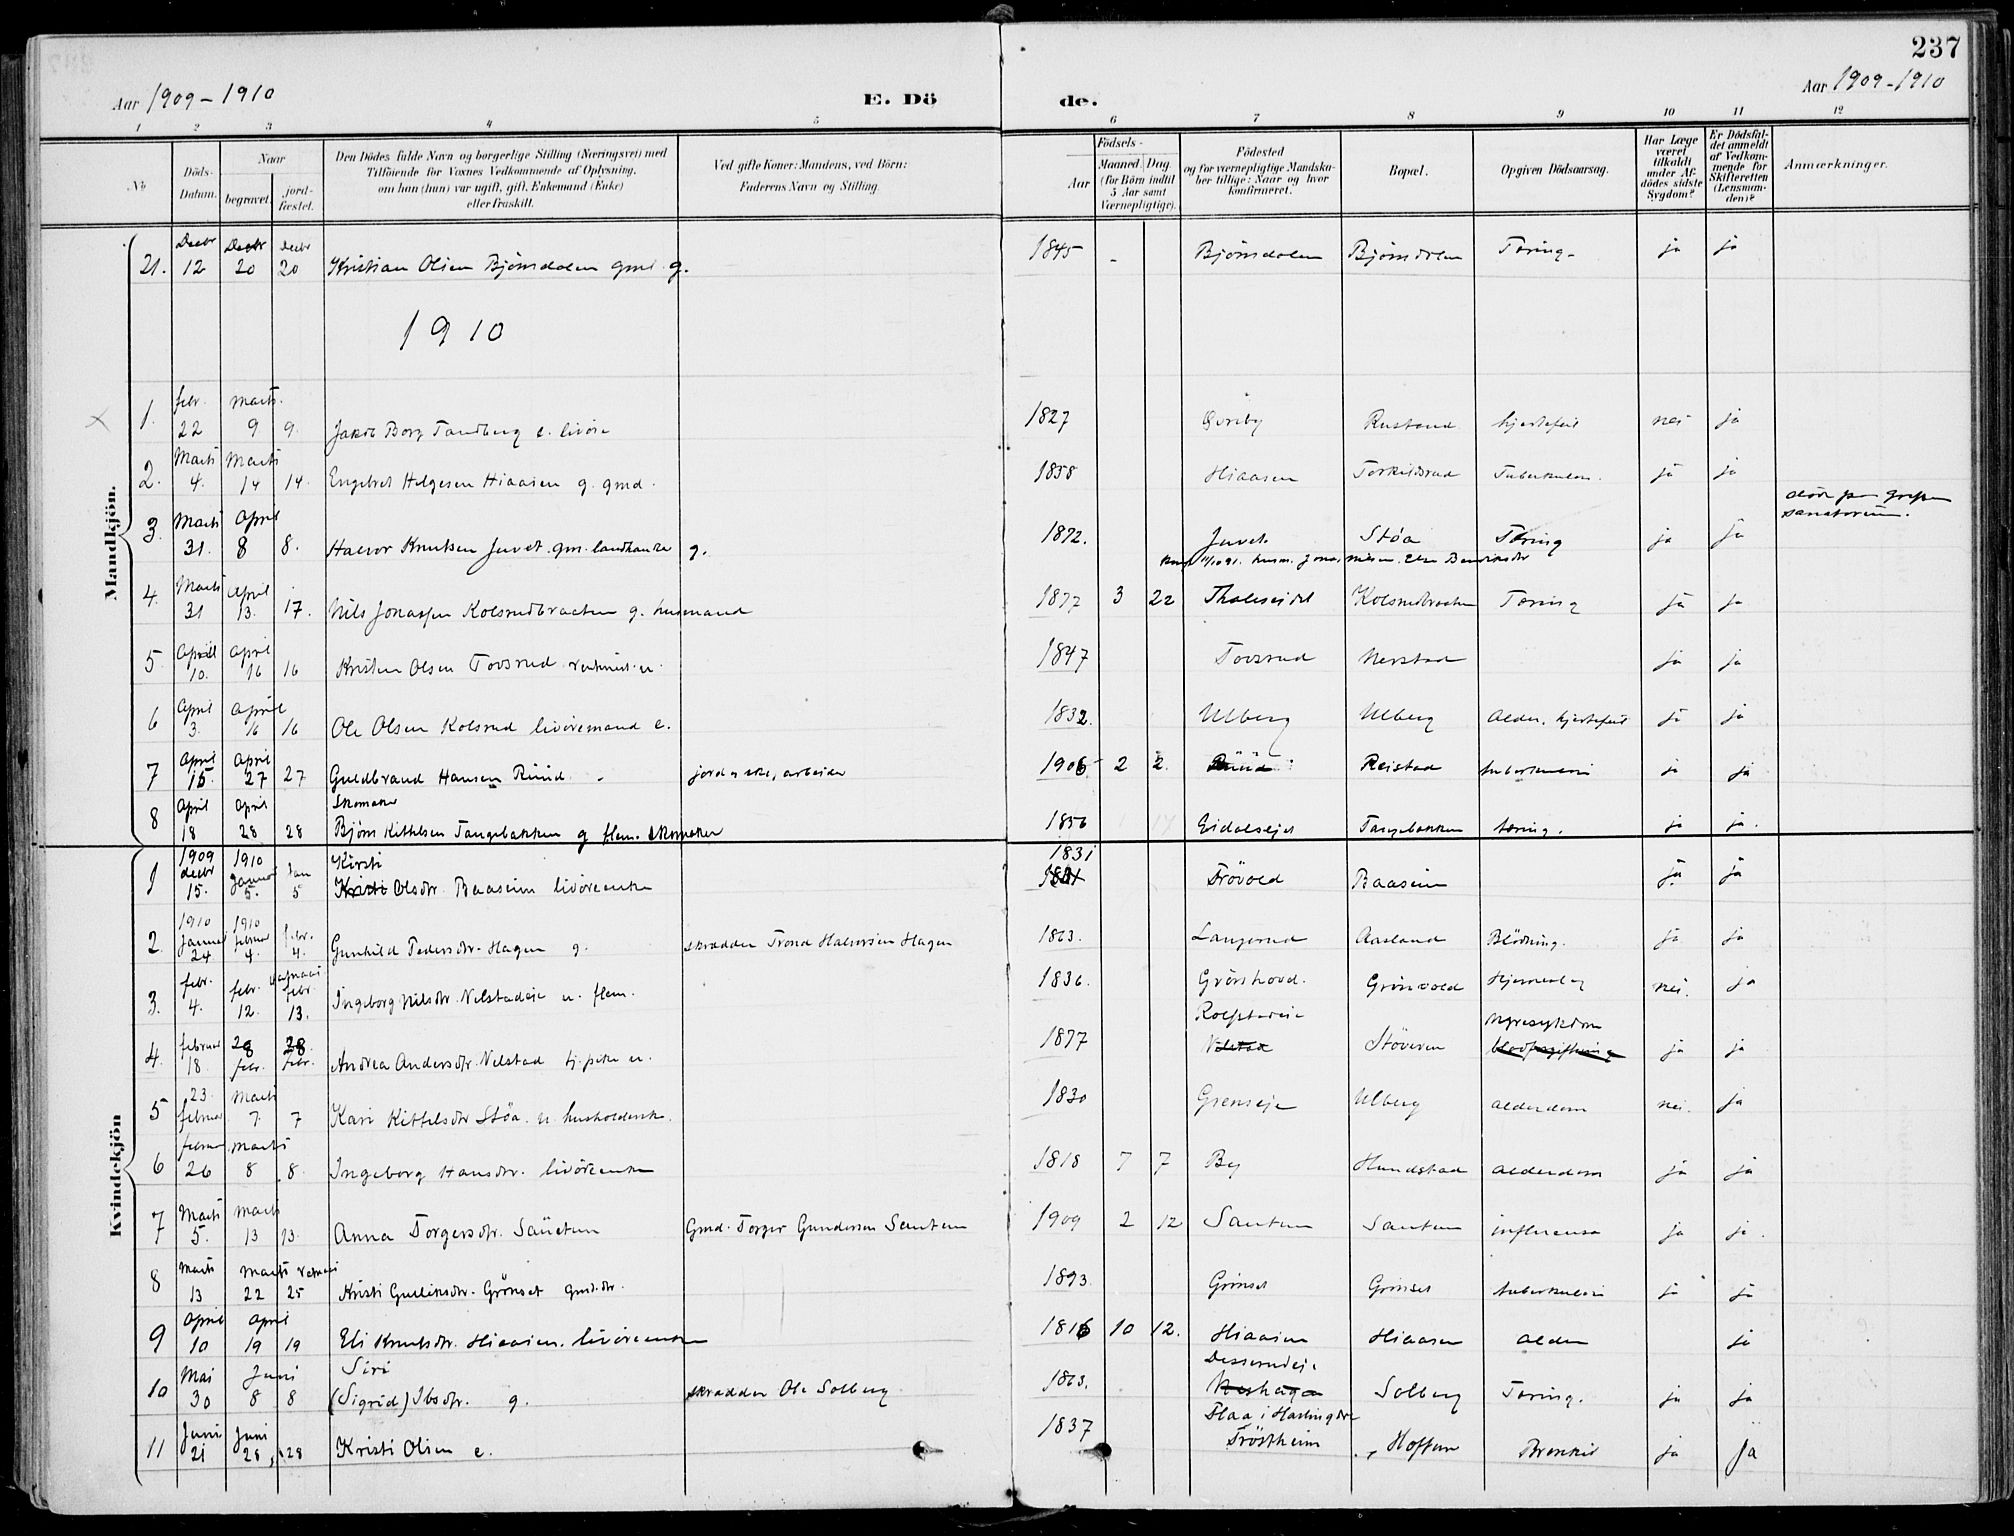 237
Aar 1909 - 1910 E. Dö de. Aar 1909 - 1910
1 2 3 4 5 6 7 8 9 10 11 12
No
Döds-Datum.
Naar
begravet.
jord-fæstet.
Den Dödes fulde Navn og borgerlige Stilling (Næringsvei) med
Tilföiende for Voxnes Vedkommende af Oplysning,
om han (hun) var ugift, gift, Enkemand (Enke)
eller fraskilt.
Ved gifte Koner: Mandens, ved Börn:
Faderens Navn og Stilling.
Födsels-
Aar
Maaned. Dag.
(for Börn indtil
5 Aar samt
Værnepligtige).
Födested
og for værnepligtige Mandska-
ber tillige: Naar og hvor
konfirmeret.
Bopæl.
Opgiven Dödsaarsag.
Har Læge
været
tilkaldt
under Af-
dödes sidste
Sygdom?
Er Dödsfal-
det anmeldt
af Vedkom-
mende for
Skifteretten
(Lensman-
den)?
Anmærkninger.
Mandkjön.
21. Decbr 12 Decbr 20 Decbr 20 Kristian Olsen Björnsdalen gmd g. 1845 - Björnsdalen Björnsdalen Tæring ja ja
1910
1. febr. 22 marts. 9 9. Jakob Borg Tandberg e. 1827 Rustand hjertefeil nei ja
2. Marts 4. Marts 14 14. Engebret Helgesen Hiaasen g. gmd. 1858 Hiaasen Torkildsrud Tuberkulose. ja ja
3. Marts 31. April 8 8. Halvor Knutsen Juvet. gm. landhandler g. 1872. Juvet Støa Tæring ja ja
sanatorium.
4. Marts 31 April 13. 17. Nils Jonassen Kolsrudbraaten g. husmand 1877 3 22 Kolsrudbraaten Tæring ja ja
5. April 10. April 16 16 Kristen Olsen Tovsrud 1847 Tovsrud Nerstad ja ja
6 April 3. April 16 16 Ole Olsen Kolsrud livøremand e. 1832. Ulberg Ulberg Alder. hjertefeil ja ja
7 April 15. April 27 27 Guldbrand Hansen Ruud arbeider 1906 2 2. Ruud Reistad tuberkulose ja ja
Skomaker
8 April 18 April 28 28 Björn Kittilsen Tangebakken g skomaker 1856 Eidalseiet Tangebakken tæring. ja ja.
Kvindekjön
Kirsti 1831
1 1909 decbr 15. 1910 Januar 5. Jan 5 Kristi Olsdtr. Baasein livøreenke Trövold Baasein ja ja
2. 1910 Januar 24 1910 februar 4. febr. 4. Gunhild Pedersdtr. Hagen g. skrædder Trond Halvorsen Hagen 1863. Langerud Aasland Blødning. ja ja
3. febr. 4. febr. 12. febr. 13. Ingeborg Nilsdtr. Velstadeie u. 1836. Grönvold Hjerneslag nei. ja
Rolfstadeie Nyresykdom
4. februar 18. 28 febr. 28 febr. Andrea Andersdtr. Velstad tj. pike u. 1877 Velstad Støveren blodforgiftning ja ja
5 23. februar Marts 7. 7 Kari Kittilsdtr Støa. u. husholderske. 1830 Grenseie Ulberg alderdom nei. ja
6 februar 26 marts 8 8. Ingeborg Hansdtr. livøreenke 1818 7 7 By Hundstad alderdom ja ja
7 Marts 5. marts 13 13. Anna Torgersdtr. Sandtun Gmd. Torger Gundersen 1909 2 12 influensa ja ja.
8 Marts 13 marts 22 25 Kristi Gulliksdtr. Grönset gmd.dtr. 1893. Grönset Grönset tuberkulose ja ja
9 April 10 April 19 19 Eli Knutsdtr. Hiaasen. livøreenke 1816 10 12. Hiaasen Hiaasen alder ja
Siri
10 Mai 30 Juni 8 8 (Sigrid) Ibsdtr. g. skrædder Ole Solberg 1863. Solberg Tæring. ja ja
Flaa i Hallingdal
11 Juni 21 Juni 28 28 Kristi Olsen e. 1837 Tröstheim Hoffum Bronkit ja ja